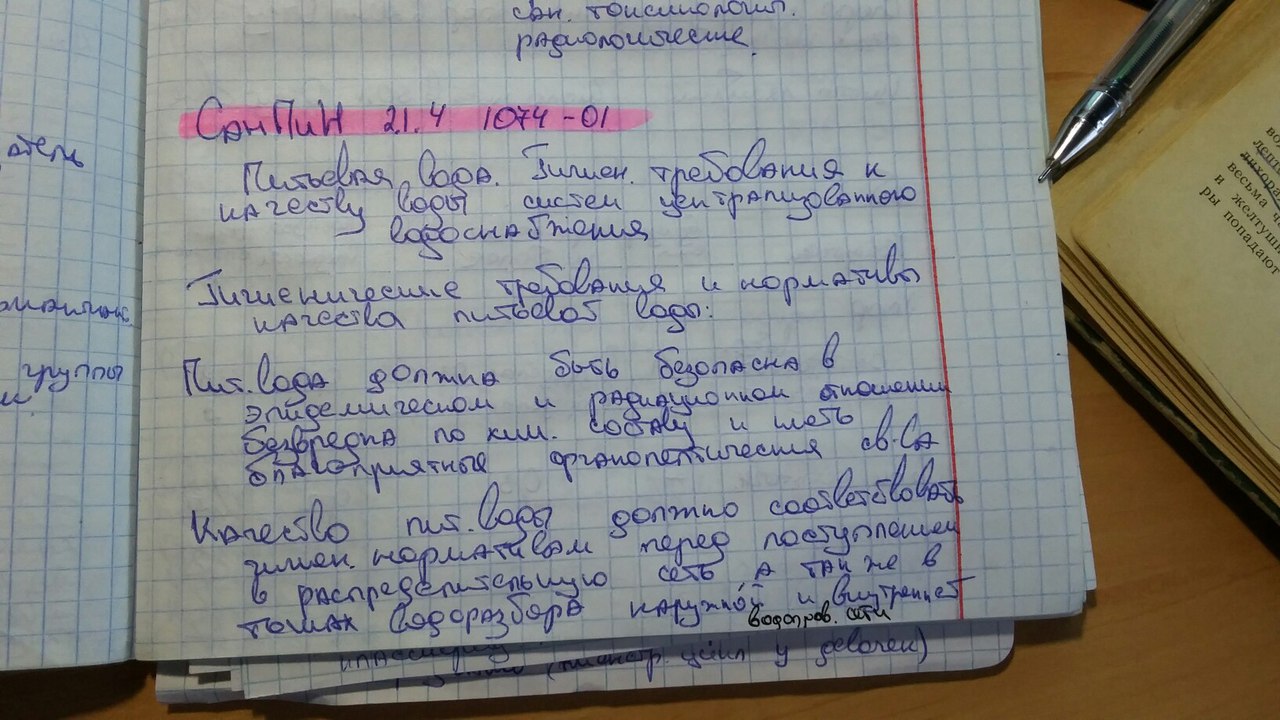 сан. токсикологич.
радиологические.
СанПиН 21.4 1074-01
Питьевая вода. Гигиен. требования к
качеству воды систем централизованного
водоснабжения
Гигиенические требования и нормативы
качества питьевой воды:
Пит. вода должна быть безопасна в
эпидемическом и радиационном отношении
безвредна по хим. составу и иметь
благоприятные органолептические св-ва
Качество пит. воды должно соответствовать
гигиен. нормативам перед поступлением
в распределительную сеть, а так же в
точках водоразбора наружной и внутренней
водопров. сети
(менстр. цикл у девочек)
атель
группы
и
весьма
и желтуш
ры попадают